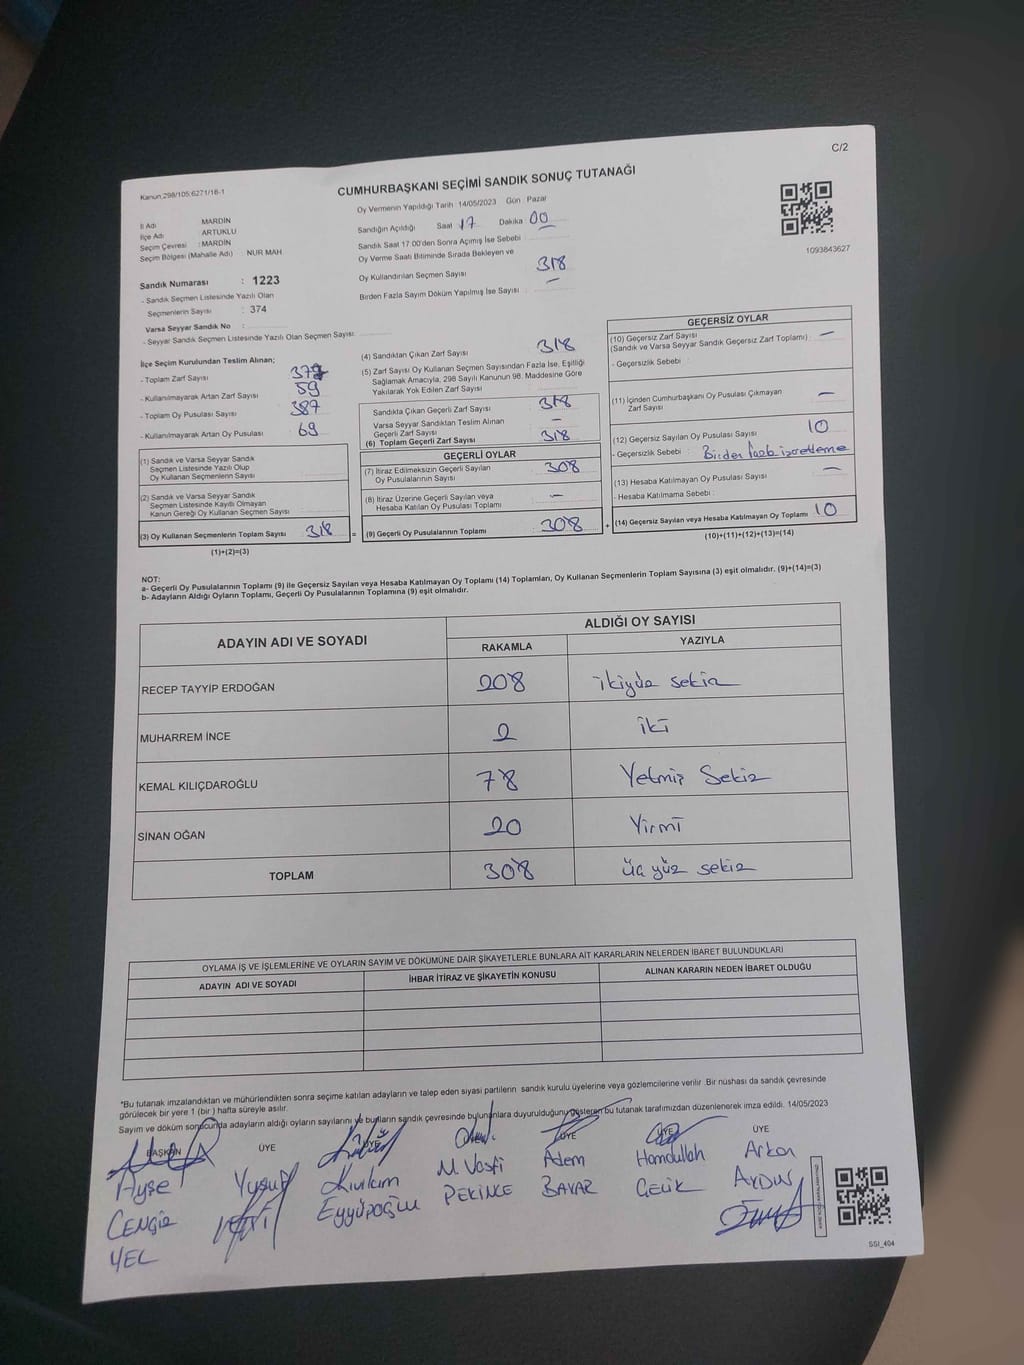 C/2
Kanun,298/105;6271/18-1
CUMHURBAŞKANI SEÇİMİ SANDIK SONUÇ TUTANAĞI
İl Adı MARDİN
İlçe Adı ARTUKLU
Seçim Çevresi : MARDİN
Seçim Bölgesi (Mahalle Adı) NUR MAH
Sandık Numarası : 1223
- Sandık Seçmen Listesinde Yazılı Olan
Seçmenlerin Sayısı : 374
Varsa Seyyar Sandık No :
- Seyyar Sandık Seçmen Listesinde Yazılı Olan Seçmen Sayısı
Oy Vermenin Yapıldığı Tarih 14/05/2023 Gün Pazar
Sandığın Açıldığı Saat 17 Dakika 00
Sandık Saat 17.00'den Sonra Açımış İse Sebebi
Oy Verme Saati Bitiminde Sırada Bekleyen ve
Oy Kullandırılan Seçmen Sayısı 318
Birden Fazla Sayım Döküm Yapılmış İse Sayısı : —
1093843627
İlçe Seçim Kurulundan Teslim Alınan;
- Toplam Zarf Sayısı
- Kullanılmayarak Artan Zarf Sayısı 59
- Toplam Oy Pusulası Sayısı 387
- Kullanılmayarak Artan Oy Pusulası 69
(1) Sandık ve Varsa Seyyar Sandık
Seçmen Listesinde Yazılı Olup
Oy Kullanan Seçmenlerin Sayısı
(2) Sandık ve Varsa Seyyar Sandık
Seçmen Listesinde Kayıtlı Olmayan
Kanun Gereği Oy Kullanan Seçmen Sayısı
(3) Oy Kullanan Seçmenlerin Toplam Sayısı 318
(1)+(2)=(3)
(4) Sandıktan Çıkan Zarf Sayısı 318
(5) Zarf Sayısı Oy Kullanan Seçmen Sayısından Fazla İse, Eşitliği
Sağlamak Amacıyla, 298 Sayılı Kanunun 98. Maddesine Göre
Yakılarak Yok Edilen Zarf Sayısı
Sandıkta Çıkan Geçerli Zarf Sayısı 318
Varsa Seyyar Sandıktan Teslim Alınan
Geçerli Zarf Sayısı —
(6) Toplam Geçerli Zarf Sayısı 318
GEÇERLİ OYLAR
(7) İtiraz Edilmeksizin Geçerli Sayılan
Oy Pusulasının Sayısı 308
(8) İtiraz Üzerine Geçerli Sayılan veya
Hesaba Katılan Oy Pusulası Toplamı —
= (9) Geçerli Oy Pusulalarının Toplamı 308
GEÇERSİZ OYLAR
(10) Geçersiz Zarf Sayısı —
(Sandık ve Varsa Seyyar Sandık Geçersiz Zarf Toplamı)
- Geçersizlik Sebebi :
(11) İçinden Cumhurbaşkanı Oy Pusulası Çıkmayan
Zarf Sayısı —
(12) Geçersiz Sayılan Oy Pusulası Sayısı 10
- Geçersizlik Sebebi : Birden fazla işaretleme
(13) Hesaba Katılmayan Oy Pusulası Sayısı —
- Hesaba Katılmama Sebebi :
+ (14) Geçersiz Sayılan veya Hesaba Katılmayan Oy Toplamı 10
(10)+(11)+(12)+(13)=(14)
NOT:
a- Geçerli Oy Pusulalarının Toplamı (9) ile Geçersiz Sayılan veya Hesaba Katılmayan Oy Toplamı (14) Toplamları, Oy Kullanan Seçmenlerin Toplam Sayısına (3) eşit olmalıdır. (9)+(14)=(3)
b- Adayların Aldığı Oyların Toplamı, Geçerli Oy Pusulalarının Toplamına (9) eşit olmalıdır.
ADAYIN ADI VE SOYADI ALDIĞI OY SAYISI
RAKAMLA YAZIYLA
RECEP TAYYİP ERDOĞAN 208 ikiyüz sekiz
MUHARREM İNCE 2 iki
KEMAL KILIÇDAROĞLU 78 Yetmiş Sekiz
SİNAN OĞAN 20 Yirmi
TOPLAM 308 üç yüz sekiz
OYLAMA İŞ VE İŞLEMLERİNE VE OYLARIN SAYIM VE DÖKÜMÜNE DAİR ŞİKAYETLERLE BUNLARA AİT KARARLARIN NELERDEN İBARET BULUNDUKLARI
ADAYIN ADI VE SOYADI İHBAR İTİRAZ VE ŞİKAYETİN KONUSU ALINAN KARARIN NEDEN İBARET OLDUĞU
*Bu tutanak imzalandıktan ve mühürlendikten sonra seçime katılan adayların ve talep eden siyasi partilerin sandık kurulu üyelerine veya gözlemcilerine verilir. Bir nüshası da sandık çevresinde
görülecek bir yere 1 (bir) hafta süreyle asılır.
Sayım ve döküm sonucunda adayların aldığı oyların sayılarını ve bunların sandık çevresinde bulunanlara duyurulduğunu gösteren bu tutanak tarafımızdan düzenlenerek imza edildi. 14/05/2023
BAŞKAN ÜYE ÜYE ÜYE ÜYE ÜYE
Ayşe Yusuf Kıvılcım M. Vasfi Adem Hamdullah Arkan
CENGİZ Eyyüpoğlu PEKİNCE BAVAR ÇELİK AYDIN
YEL
SSI_404